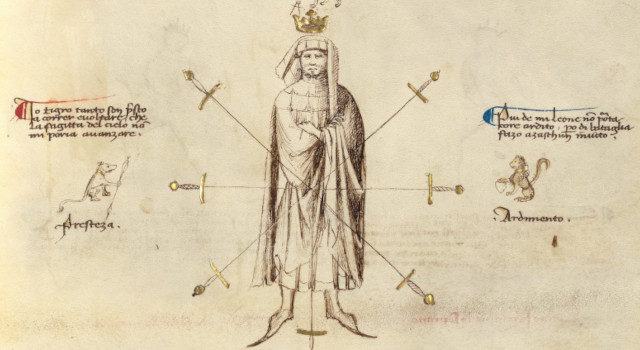 Io tigro tanto son p̄sto
a correr e uoltare. che
la sagitta del cielo nō
mi poria auanzare.
Presteza.
Piu de mi leone nō porta
core ardito. po di bataglia
fazo azaschun inuito.
Ardimento.